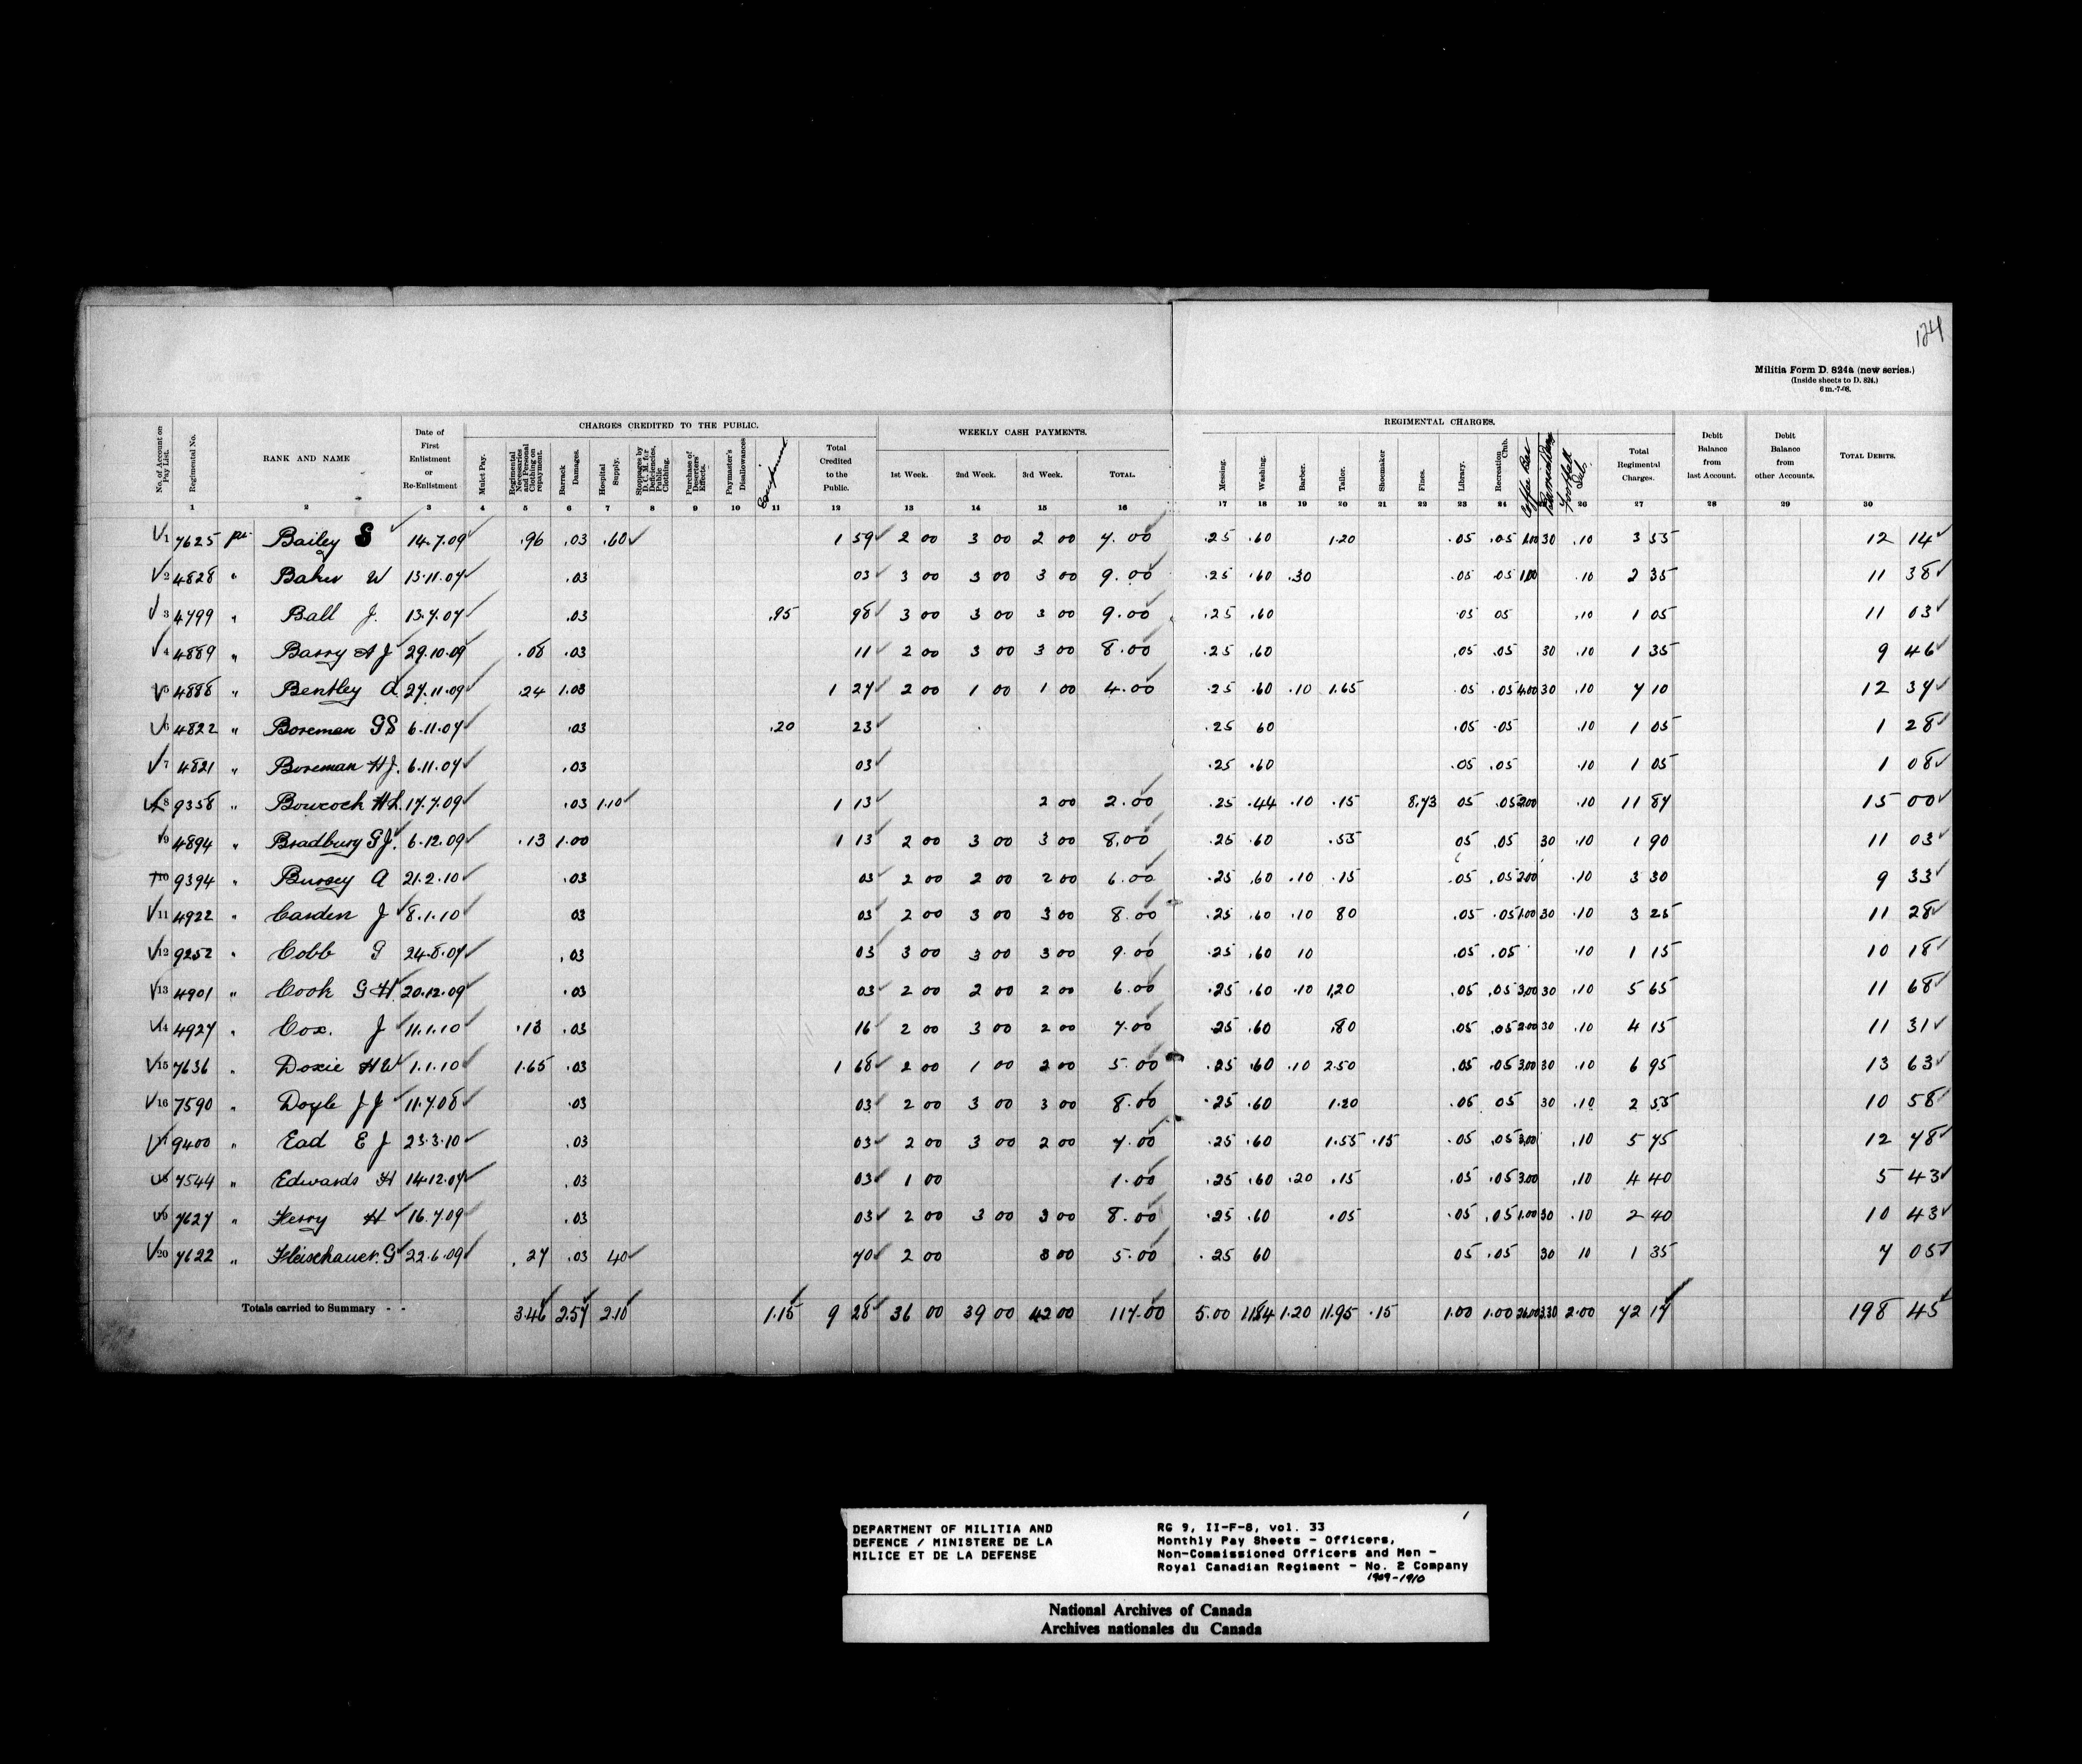 124
Militia Form D. 824a (new series.)
(Inside sheets to D. 824.)
6 m.-7-08.
CHARGES CREDITED TO THE PUBLIC. WEEKLY CASH PAYMENTS. REGIMENTAL CHARGES.
No. of Account on Pay List. Regimental No. RANK AND NAME Date of First Enlistment or Re-Enlistment Mulct Pay. Regimental Necessaries and Personal Clothing on repayment. Barrack Damages. Hospital Supply. Stoppages by D.C.M. for Deficiencies, Public Clothing. Purchase of Deserters' Effects. Paymaster's Disallowances Equipment Total Credited to the Public. 1st Week. 2nd Week. 3rd Week. TOTAL. Messing. Washing. Barber. Tailor. Shoemaker Fines. Library. Recreation Club. Coffee Bar Football Sub. Total Regimental Charges. Debit Balance from last Account. Debit Balance from other Accounts. TOTAL DEBITS.
1 2 3 4 5 6 7 8 9 10 11 12 13 14 15 16 17 18 19 20 21 22 23 24 25 26 27 28 29 30
1 7625 pte Bailey S 14.7.09 .96 .03 .60 1 59 2 00 3 00 2 00 7.00 .25 .60 1.20 .05 .05 1.00 30 .10 3 55 12 14
2 4828 " Baker W 13.11.07 .03 03 3 00 3 00 3 00 9.00 .25 .60 .30 .05 .05 1.00 .10 2 35 11 38
3 4799 " Ball J. 13.7.07 .03 .95 98 3 00 3 00 3 00 9.00 .25 .60 .05 05 .10 1 05 11 03
4 4889 " Barry A J 29.10.09 .08 .03 11 2 00 3 00 3 00 8.00 .25 .60 .05 .05 30 .10 1 35 9 46
5 4888 " Bentley A 27.11.09 .24 1.03 1 27 2 00 1 00 1 00 4.00 .25 .60 .10 1.65 .05 .05 4.00 30 .10 7 10 12 37
6 4822 " Boreman G S 6.11.07 .03 .20 23 .25 60 .05 .05 .10 1 05 1 28
7 4821 " Boreman H J. 6.11.07 .03 03 .25 .60 .05 .05 .10 1 05 1 08
8 9358 " Bowcock H L. 17.7.09 .03 1.10 1 13 2 00 2.00 .25 .44 .10 .15 8.73 05 .05 2.00 .10 11 87 15 00
9 4894 " Bradbury G J. 6.12.09 .13 1.00 1 13 2 00 3 00 3 00 8.00 .25 .60 .55 05 .05 30 .10 1 90 11 03
10 9394 " Bussey A 21.2.10 .03 03 2 00 2 00 2 00 6.00 .25 .60 .10 .15 .05 .05 2.00 .10 3 30 9 33
11 4922 " Carden J 8.1.10 03 03 2 00 3 00 3 00 8.00 .25 .60 .10 80 .05 .05 1.00 30 .10 3 25 11 28
12 9252 " Cobb G 24.8.07 .03 03 3 00 3 00 3 00 9.00 .25 .60 10 .05 .05 .10 1 15 10 18
13 4901 " Cook G H. 20.12.09 .03 03 2 00 2 00 2 00 6.00 .25 .60 .10 1.20 .05 .05 3.00 30 .10 5 65 11 68
14 4927 " Cox. J 11.1.10 .13 .03 16 2 00 3 00 2 00 7.00 25 .60 .80 .05 .05 2.00 30 .10 4 15 11 31
15 7636 " Doxie H W 1.1.10 1.65 .03 1 68 2 00 1 00 2 00 5.00 .25 .60 .10 2.50 .05 .05 3.00 30 .10 6 95 13 63
16 7590 " Doyle J J 11.7.08 .03 03 2 00 3 00 3 00 8.00 .25 .60 1.20 .05 05 30 .10 2 55 10 58
17 9400 " Ead E J 23.3.10 .03 03 2 00 3 00 2 00 7.00 .25 .60 1.55 .15 .05 .05 3.00 .10 5 75 12 78
18 7544 " Edwards H 14.12.07 .03 03 1 00 1.00 .25 .60 .20 .15 .05 .05 3.00 .10 4 40 5 43
19 7627 " Ferry H 16.7.09 .03 03 2 00 3 00 3 00 8.00 .25 .60 .05 .05 .05 1.00 30 .10 2 40 10 43
20 7622 " Fleischauer. G 22.6.09 .27 .03 40 70 2 00 3 00 5.00 .25 60 05 .05 30 10 1 35 7 05
Totals carried to Summary - - 3.46 2.57 2.10 1.15 9 28 36 00 39 00 42 00 117.00 5.00 11.84 1.20 11.95 .15 1.00 1.00 26.00 3.30 2.00 72 17 198 45
DEPARTMENT OF MILITIA AND
DEFENCE / MINISTERE DE LA
MILICE ET DE LA DEFENSE
1
RG 9, II-F-8, vol. 33
Monthly Pay Sheets - Officers,
Non-Commissioned Officers and Men -
Royal Canadian Regiment - No. 2 Company
1909-1910
National Archives of Canada
Archives nationales du Canada